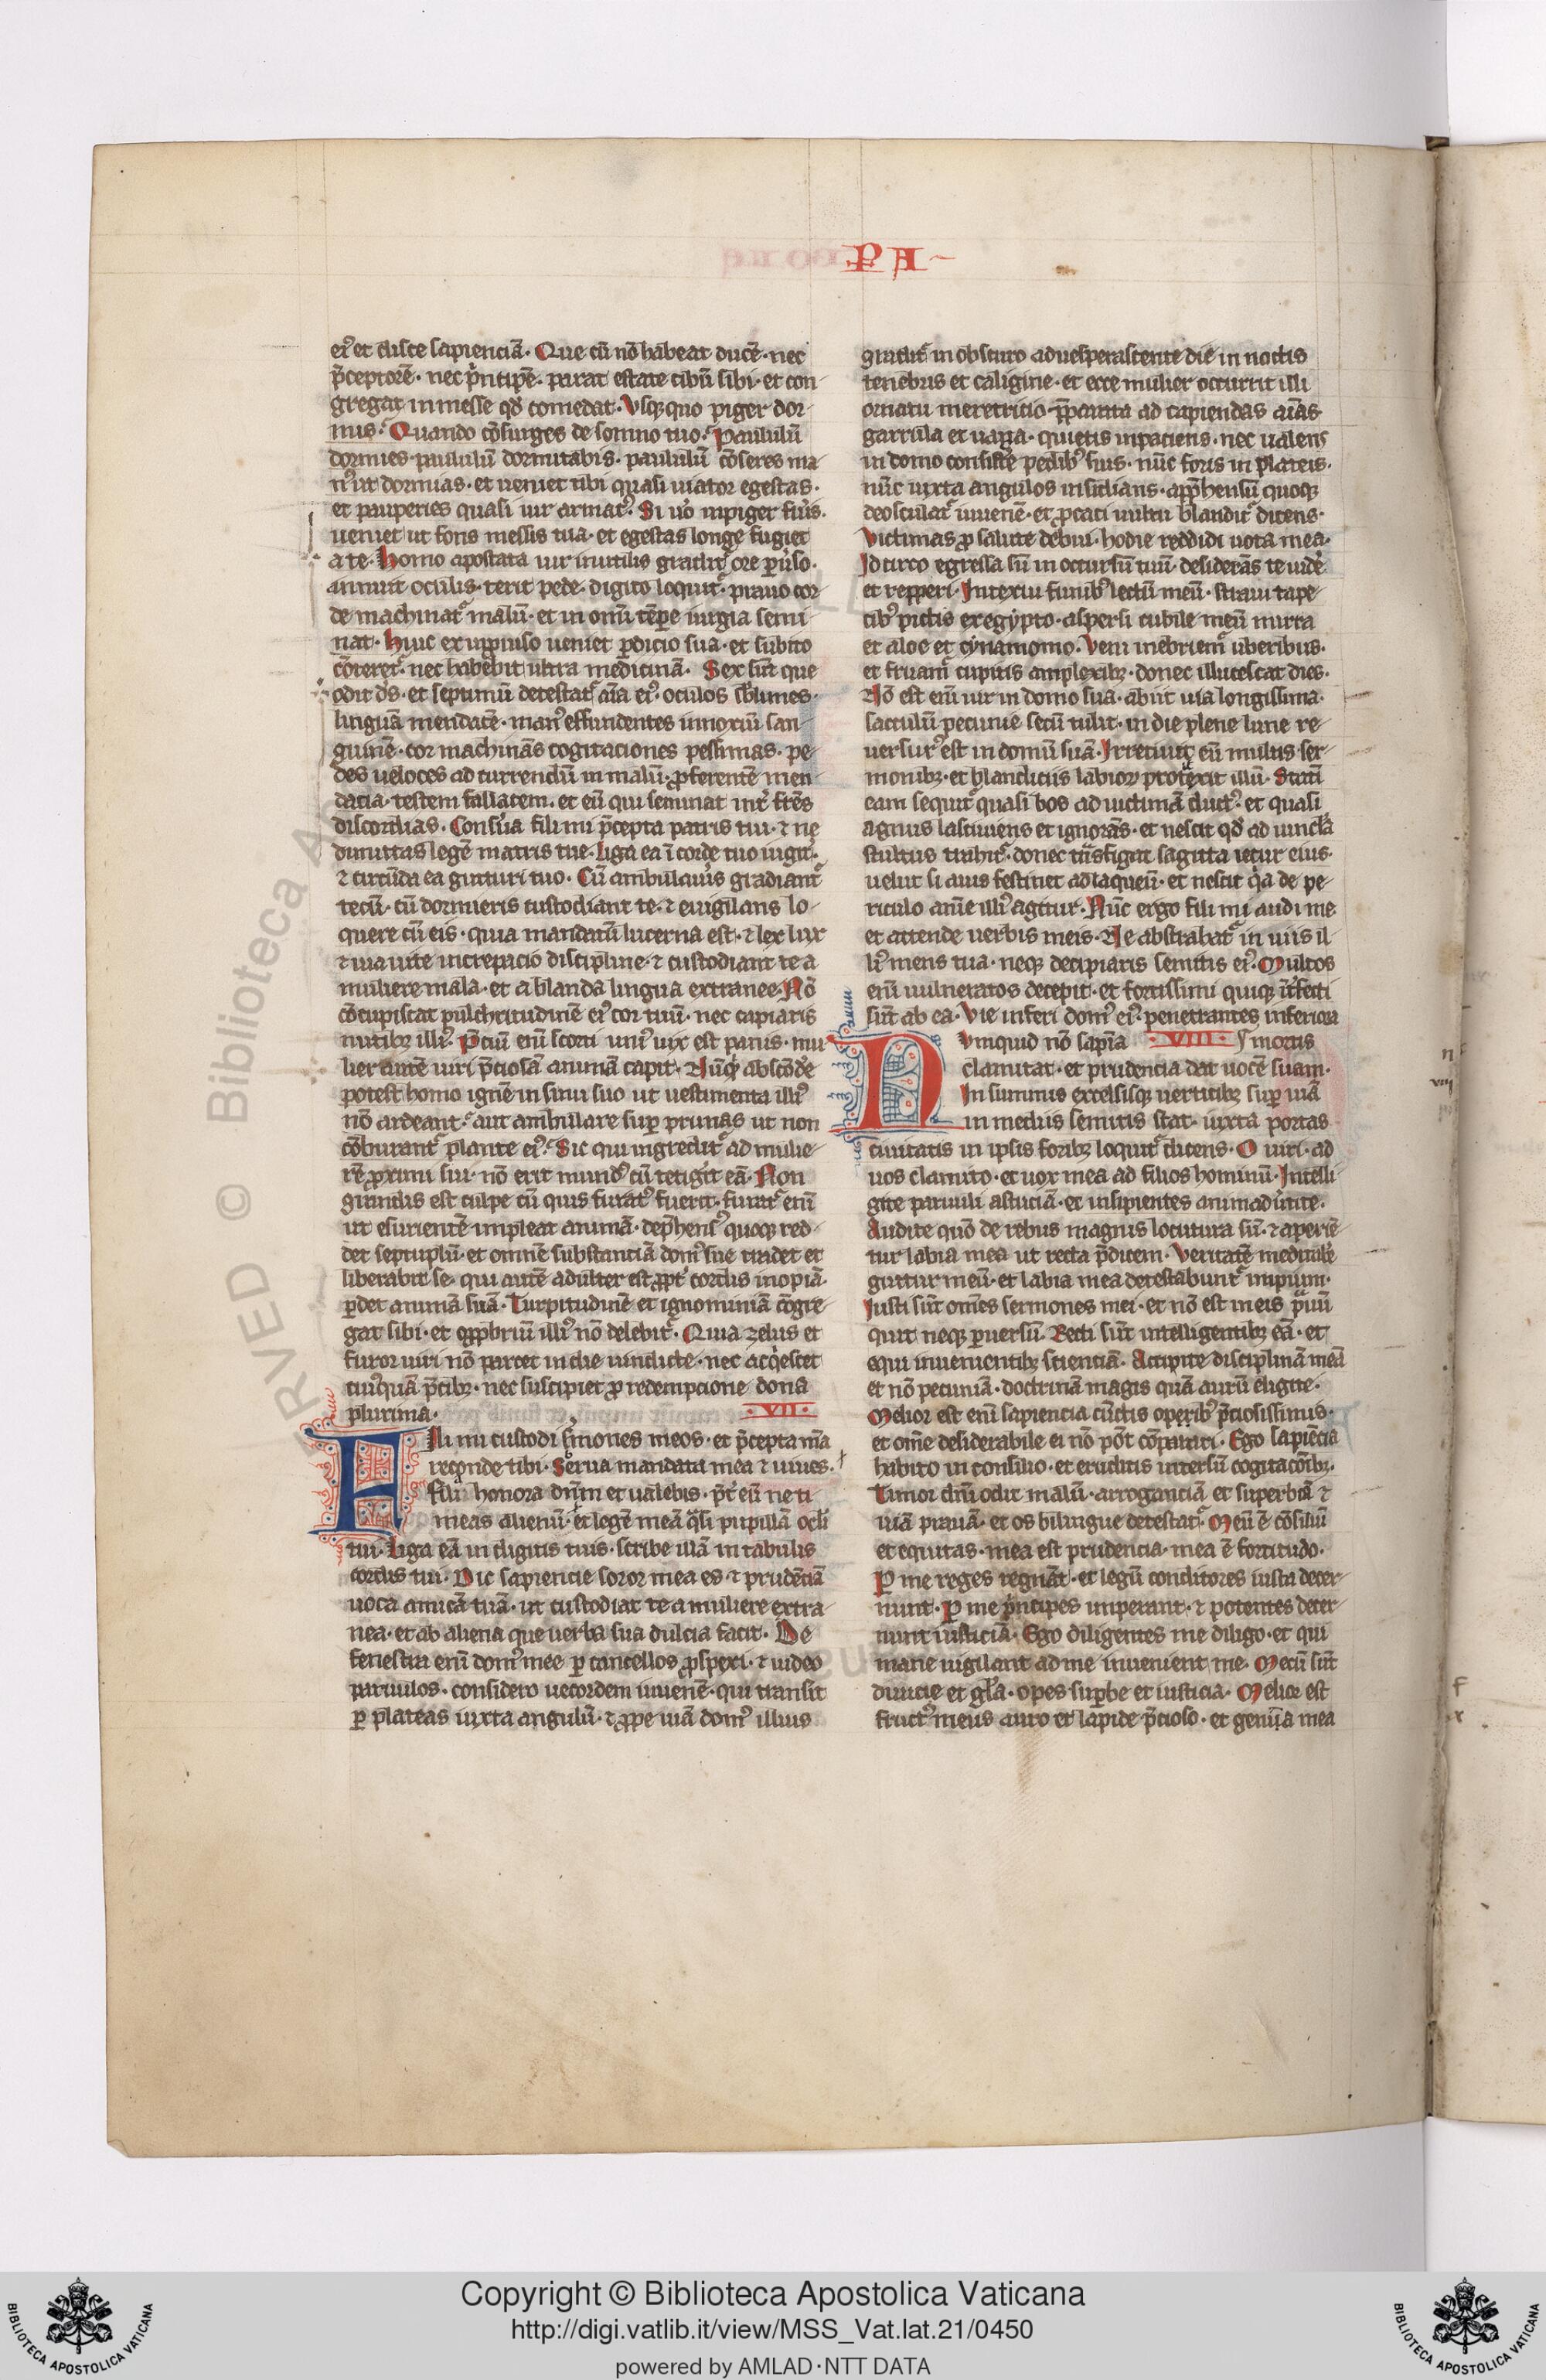 PA
ei᷒ et disce sapienciā· Que cū nō habeat ducē· nec
p̄ceptorē· nec p̍ncipē· parat estate cibū sibi· et con-
gregat in messe qd̄ comedat· Vsq; quo piger dor-
mis· Quando cōsurges de somno tuo· Paululū
dormies· paululū dormitabis· paululū cōseres ma-
n᷒ ut dormias· et ueniet tibi quasi uiator egestas·
et pauperies quasi uir armat᷒· Si uo̍ inpiger fu̍is·
ueniet ut fons messis tua· et egestas longe fugiet
a te· Homo apostata uir inutilis gradit᷑ ore ꝑu̍so·
annuit oculis· terit pede· digito loquit᷑· prauo cor-
de machinat᷑ malū· et in om̄i tēpe iurgia semi-
nat· Huic ex inprouiso ueniet ꝑdicio sua· et subito
cōteret᷑· nec habebit ultra medicinā· Sex sūt que
odit d̄s· et septimū detestat᷑ aīa ei᷒· oculos sb̄limes·
linguā mendacē· man᷒ effundentes innoxiū san-
guinē· cor machinās cogitaciones pessimas· pe-
des ueloces ad currendū in malū· ꝓferentē men-
dacia· testem fallacem· et eū qui seminat int̍ fr̄es
discordias· Conſu̍a fili mi p̄cepta patris tui· ⁊ ne
dimittas legē matris tue· Liga ea ī corde tuo iugit̍·
⁊ circūda ea gutturi tuo· Cū ambulau̍is gradiant᷑
tecū· cū dormieris custodiant te· ⁊ euigilans lo-
quere cū eis· quia mandatū lucerna est· ⁊ lex lux
⁊ uia uite increpacio discipline· ⁊ custodiant te a
muliere mala· et a blanda lingua extranee· Nō
cōcupiscat pulchritudinē ei᷒ cor tuū· nec capiaris
nutib; illi᷒· P̄ciū enī scorti uni᷒ uix est panis· mu-
lier autē uiri p̄ciosā animā capit· Nūq̍d abscōde̍
potest homo ignē in sinu suo ut uestimenta illi᷒
nō ardeant· aut ambulare suꝑ prunas ut non
cōburant᷑ plante ei᷒· Sic qui ingredit᷑ ad mulie-
rē ꝓximi sui· nō erit mund᷒ cū tetig̍it eā· Non
grandis est culpe cū quis furat᷒ fuerit· furat᷑ enī
ut esurientē impleat animā· dep̄hens᷒ quoq; red-
det septuplū· et omnē substanciā dom᷒ sue tradet et
liberabit se· qui autē adulter est ꝓpt̍ cordis inopiā·
ꝑdet animā suā· Turpitudinē et ignominiā cōgre-
gat sibi· et opprobriū illi᷒ nō delebit᷑· Quia zelus et
furor uiri nō parcet in die uindicte· nec acq̍escet
cui᷒quā p̄cib;· nec suscipiet ꝓ redempcione dona
plurima· ·VII·
Fili mi custodi s̍mones meos· et p̄cepta m̄a
reconde tibi· Serua mandata mea ⁊ uiues·
fili honora dn̄m et ualebis· p̄t̍ eū ne ti-
meas alienū· et legē meā q̍si pupillā ocl̍i
tui· Liga eā in digitis tuis· scribe illā in tabulis
cordis tui· Dic sapiencie soror mea es· ⁊ prudēciā
uoca amicā tuā· ut custodiat te a muliere extra-
nea· et ab aliena que uerba sua dulcia facit· De
fenestra enī dom᷒ mee ꝑ cancellos ꝓspexi· ⁊ uideo
paruulos· considero uecordem iuuenē· qui transit
ꝑ plateas iuxta angulū· ⁊ ꝓpe uiā dom᷒ illius
gradit᷑ in obscuro aduesperascente die in noctis
tenebris et caligine· et ecce mulier occurrit illi
ornatu meretricio p̄parata ad capiendas aīas·
garrula et uaga· quietis inpaciens· nec ualens
in domo consiste̍ pedib᷒ suis· nūc foris in plateis·
nūc iuxta angulos insidians· app̄hensū quoq;
deosculat᷑ iuuenē· et ꝓcaci uultu blandit᷑ dicens·
Victimas ꝓ salute debui· hodie reddidi uota mea·
Idcirco egressa sū in occursū tuū· desiderās te uide̍
et repperi· Intexui funib᷒ lectū meū· straui tape-
tib᷒ pictis ex egypto· aspersi cubile meū mirra
et aloe et cynamomo· Veni inebriem᷑ uberibus·
et fruam᷑ cupitis amplexib;· donec illucescat dies·
Nō est enī uir in domo sua· abiit uia longissima·
sacculū pecunie secū tulit· in die plene lune re-
uersur᷒ est in domū suā· Irretiuit eū multis ser-
monib;· et blandiciis labioꝝ protraxit illū· Statī
eam sequit᷑ quasi bos ad uictimā duct᷒· et quasi
agnus lasciuiens et ignorās· et nescit qd̄ ad uincl̍a
stultus trahit᷑· donec trāsfigat sagitta iecur eius·
uelut si auis festinet ad laqueū· et nescit q̍a de pe-
riculo anīe illi᷒ agitur· Nūc ergo fili mi audi me
et attende uerbis meis· Ne abstrahat᷑ in uiis il-
li᷒ mens tua· neq; decipiaris semitis ei᷒· Multos
enī uulneratos deiecit· et fortissimi quiq; īt̍fecti
sūt ab ea· Vie inferi dom᷒ ei᷒· penetrantes inferiora
Nvmquid nō sapīa ·VIII· mortis
clamitat· et prudencia dat uocē suam·
In summis excelsisq; uerticib; suꝑ uiā
in mediis semitis stat· iuxta portas
ciuitatis in ipsis forib; loquit᷑ dicens· O uiri· ad
uos clamito· et uox mea ad filios hominū· Intelli-
gite paruuli astuciā· et insipientes animadu̍tite·
Audite quō de rebus magnis locutura sū· ⁊ aperiē-
tur labia mea ut recta p̄dicem· Veritatē meditabit᷑
guttur meū· et labia mea detestabunt᷑ impium·
Iusti sūt om̄es sermones mei· et nō est in eis p̍uū
quit neq; ꝑuersū· Recti sūt intelligentib; eā· et
equi inuenientib; scienciā· Accipite disciplinā meā
et nō pecuniā· doctrinā magis quā aurū eligite·
Melior est enī sapiencia cūctis operib᷒ p̄ciosissimis·
et om̄e desiderabile ei nō pōt cōparari· Ego sapīecia
habito in consilio· et eruditis intersū cogitacōib;·
Timor dn̄i odit malū· arroganciā et superbiā ⁊
uiā prauā· et os bilingue detestat᷑· Meū ē cōsiliū
et equitas· mea est prudencia· mea ē fortitudo·
Ꝑ me reges regnāt· et legū conditores iusta decer-
nunt· Ꝑ me p̍ncipes imperant· ⁊ potentes decer-
nunt iusticiā· Ego diligentes me diligo· et qui
mane uigilant ad me inuenient me· Mecū sūt
diuicie et gl̄a· opes suꝑbe et iusticia· Melior est
fruct᷒ meus auro et lapide p̄cioso· et genīa mea
Copyright © Biblioteca Apostolica Vaticana
http://digi.vatlib.it/view/MSS_Vat.lat.21/0450
powered by AMLAD·NTT DATA
BIBLIOTECA APOSTOLICA VATICANA
BIBLIOTECA APOSTOLICA VATICANA